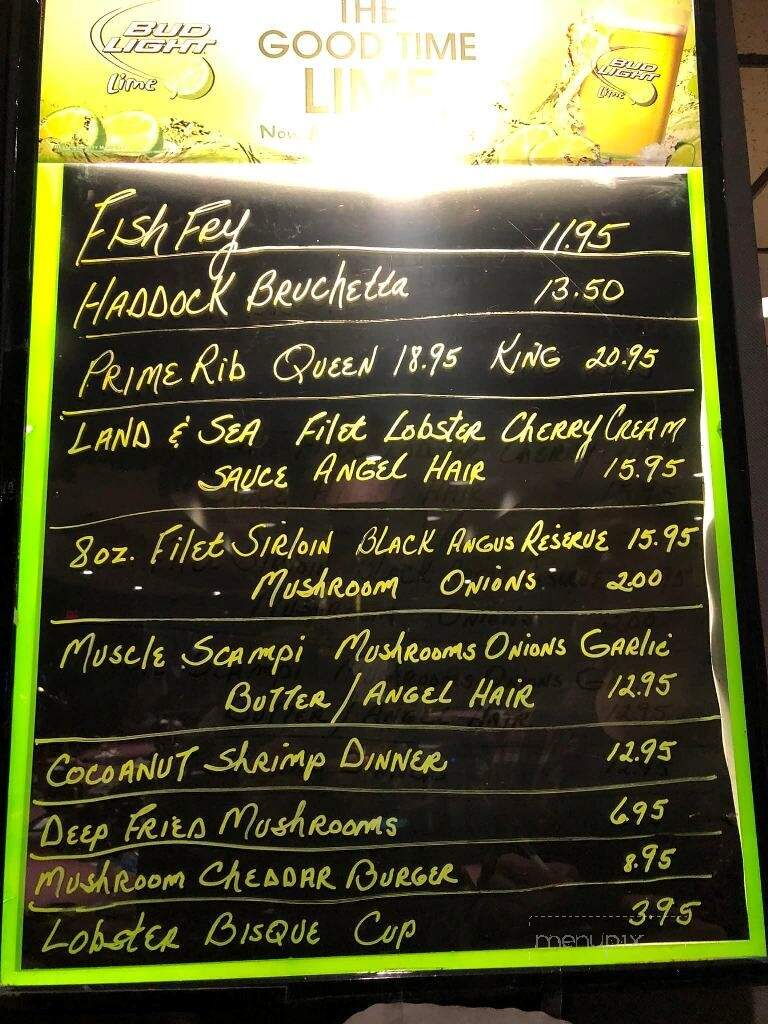 THE
BUD LIGHT Lime
GOOD TIME
LIME
BUD LIGHT Lime
Fish Fry 11.95
HADDOCK Bruchetta 13.50
PRIME Rib QUEEN 18.95 KING 20.95
LAND & SEA Filet Lobster Cherry Cream
SAUCE ANGEL HAIR 15.95
8oz. Filet Sirloin BLACK ANGUS RESERVE 15.95
MUSHROOM ONIONS 2.00
Muscle Scampi Mushrooms Onions Garlic
BUTTER / ANGEL HAIR 12.95
COCOANUT Shrimp DINNER 12.95
DEEP FRIED MushROOMS 6.95
MUSHROOM CHEDDAR BURGER 8.95
LOBSTER BISQUE CUP 3.95
menupix